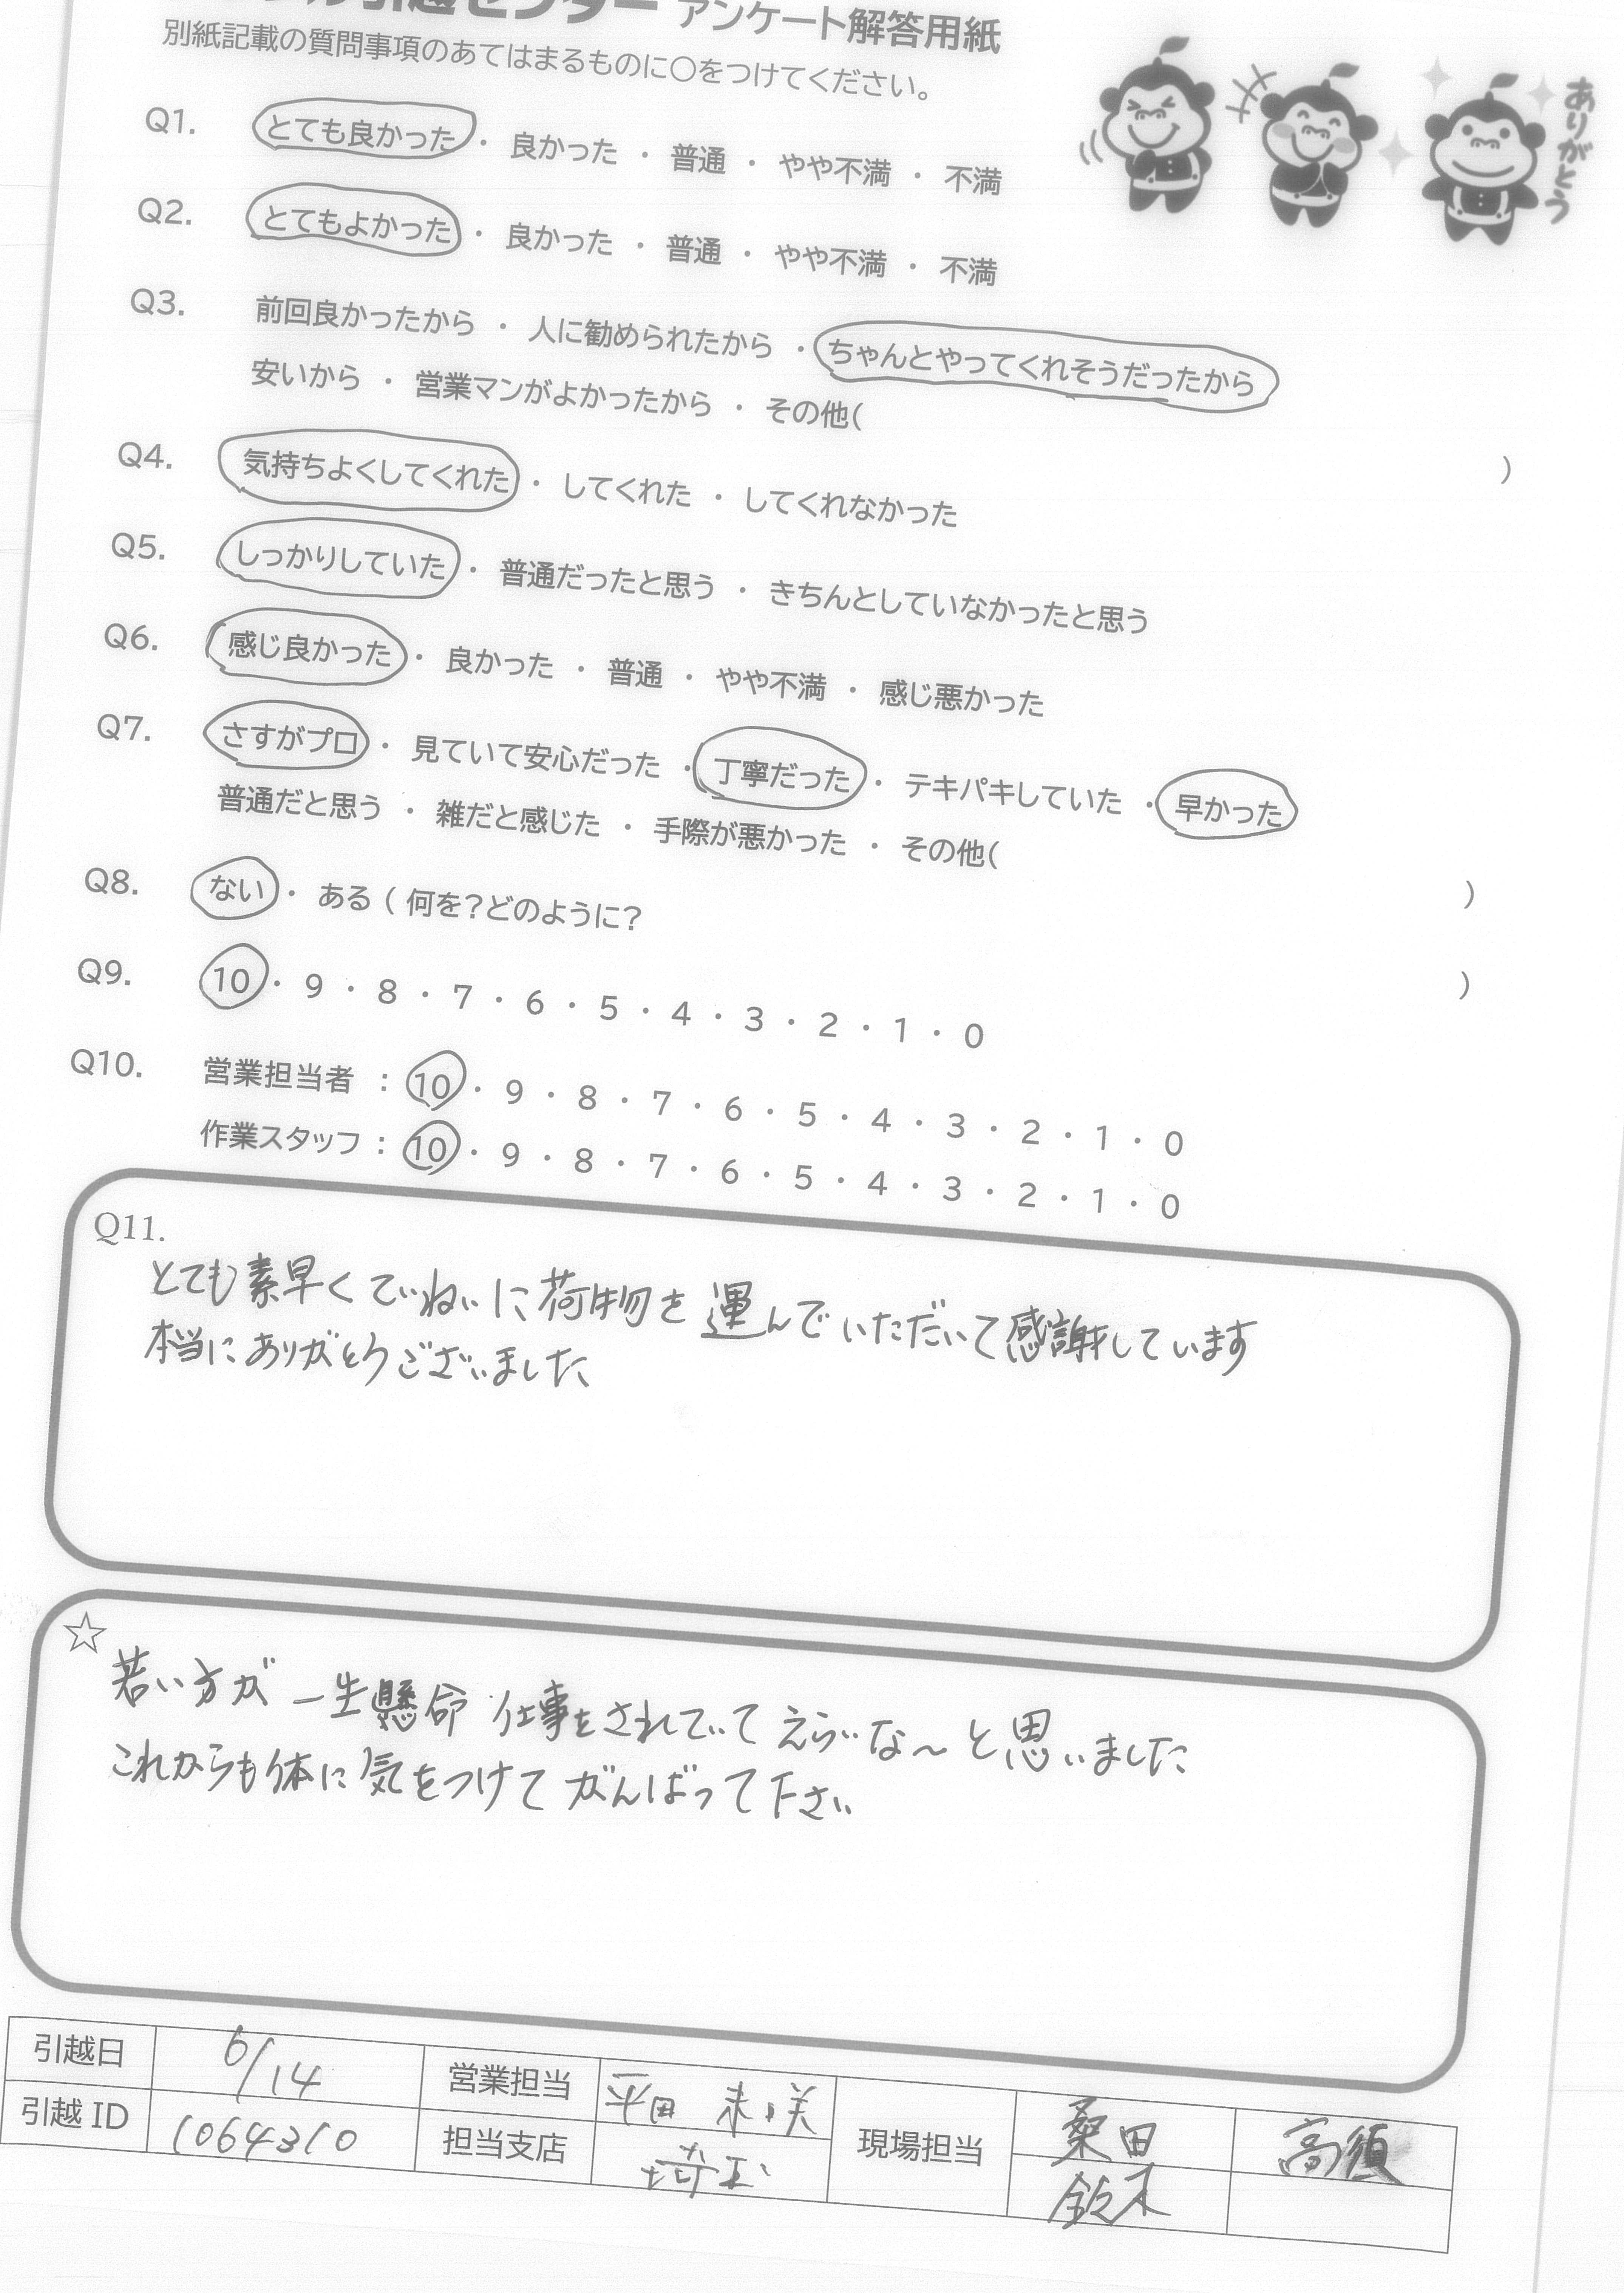 引越センター アンケート解答用紙
別紙記載の質問事項のあてはまるものに○をつけてください。
ありがとう
Q1. とても良かった ・ 良かった ・ 普通 ・ やや不満 ・ 不満
Q2. とてもよかった ・ 良かった ・ 普通 ・ やや不満 ・ 不満
Q3. 前回良かったから ・ 人に勧められたから ・ ちゃんとやってくれそうだったから
安いから ・ 営業マンがよかったから ・ その他( )
Q4. 気持ちよくしてくれた ・ してくれた ・ してくれなかった
Q5. しっかりしていた ・ 普通だったと思う ・ きちんとしていなかったと思う
Q6. 感じ良かった ・ 良かった ・ 普通 ・ やや不満 ・ 感じ悪かった
Q7. さすがプロ ・ 見ていて安心だった ・ 丁寧だった ・ テキパキしていた ・ 早かった
普通だと思う ・ 雑だと感じた ・ 手際が悪かった ・ その他( )
Q8. ない ・ ある ( 何を?どのように? )
Q9. 10 ・ 9 ・ 8 ・ 7 ・ 6 ・ 5 ・ 4 ・ 3 ・ 2 ・ 1 ・ 0
Q10. 営業担当者 : 10 ・ 9 ・ 8 ・ 7 ・ 6 ・ 5 ・ 4 ・ 3 ・ 2 ・ 1 ・ 0
作業スタッフ : 10 ・ 9 ・ 8 ・ 7 ・ 6 ・ 5 ・ 4 ・ 3 ・ 2 ・ 1 ・ 0
Q11.
とても素早くていねいに荷物を運んでいただいて感謝しています
本当にありがとうございました
☆
若い方が一生懸命仕事をされていてえらいな〜と思いました
これからも体に気をつけてがんばって下さい
引越日 6/14 営業担当 平田 未咲 現場担当 桑田 高須
引越ID 1064310 担当支店 埼玉 鈴木